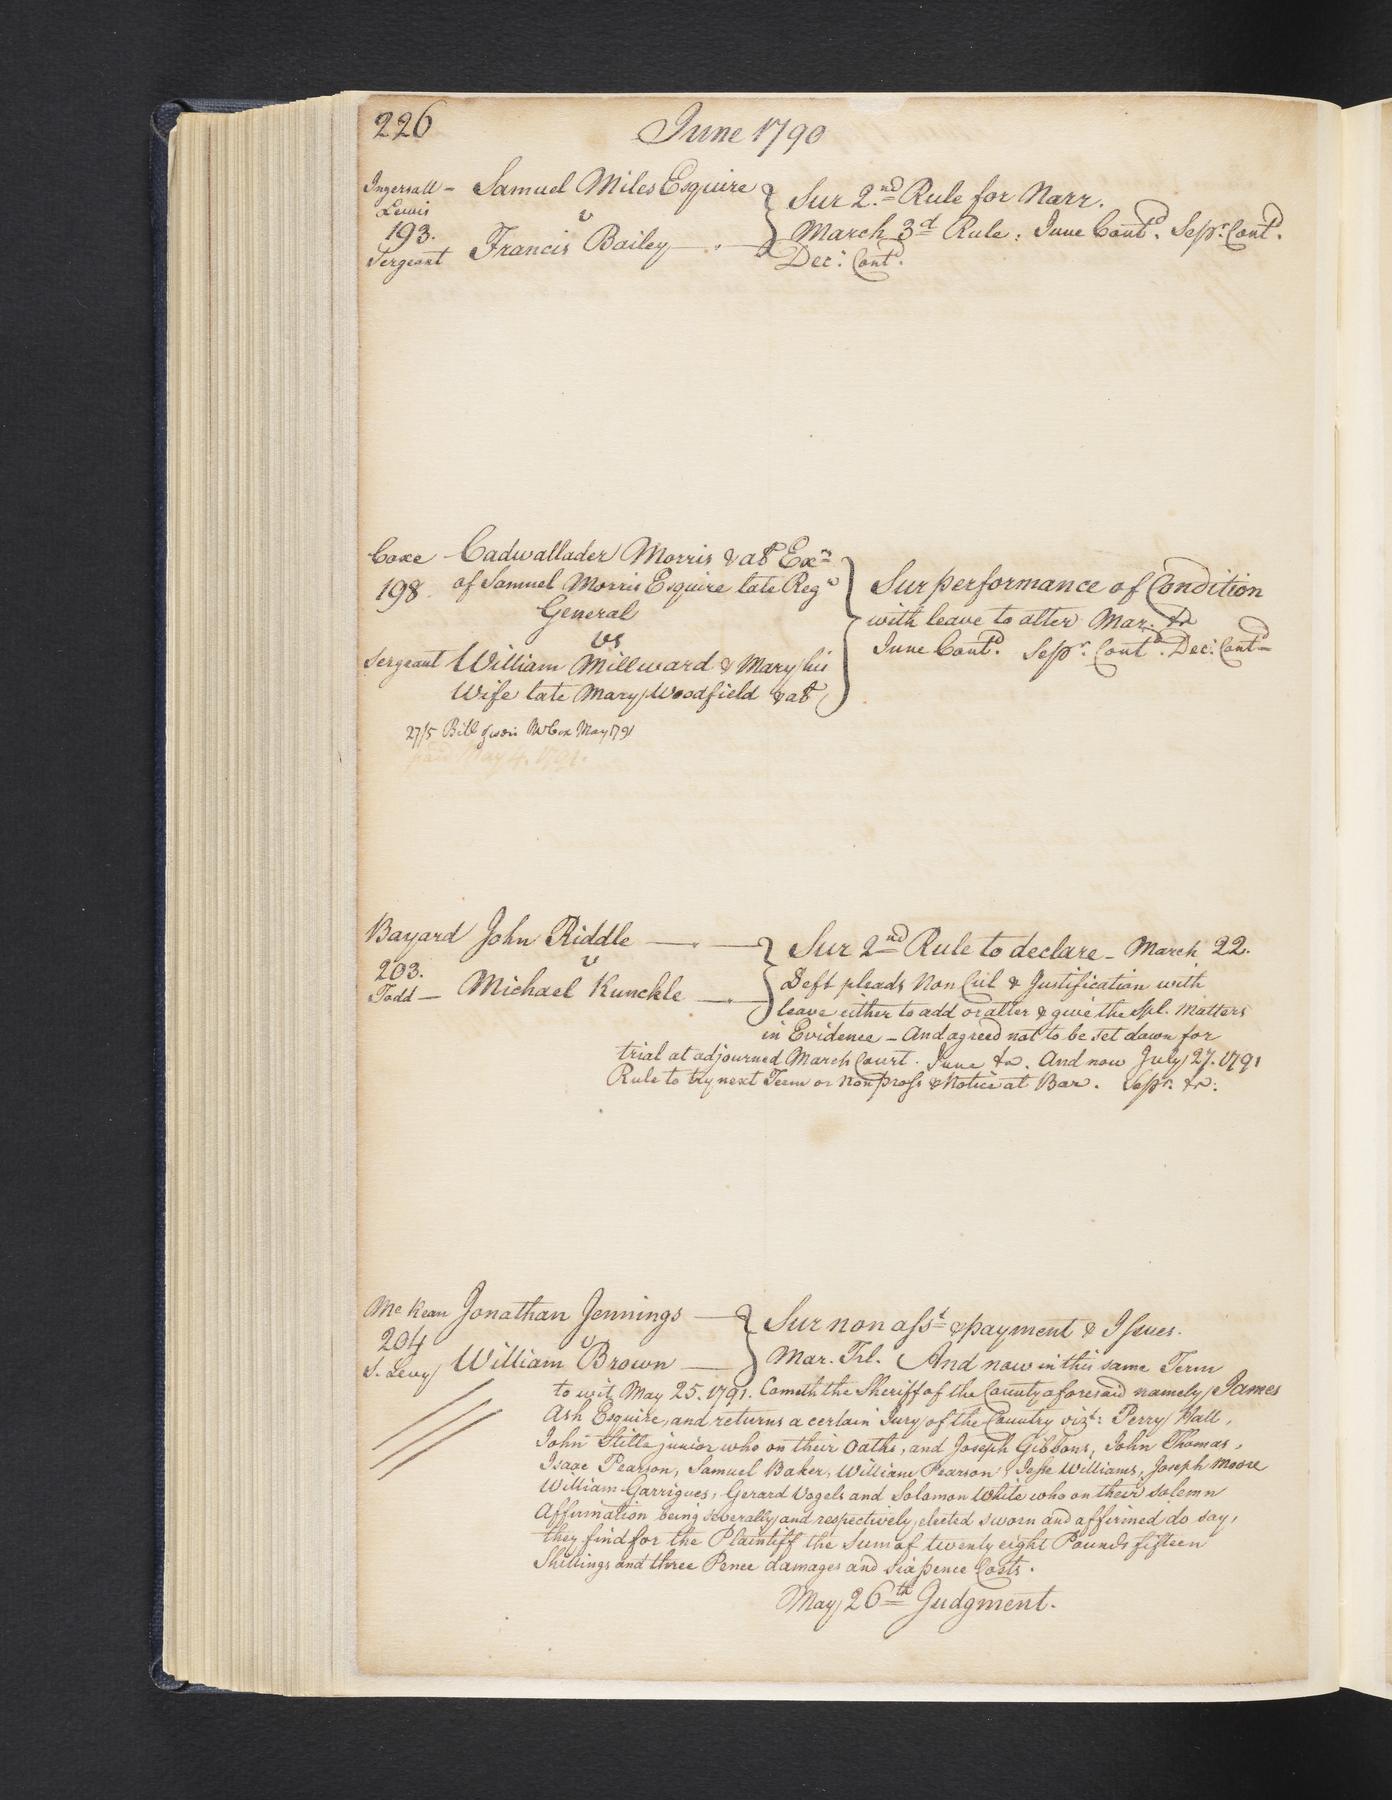 226
June 1790
Ingersoll - Samuel Miles Esquire
Lewis
193.
v
Sergeant Francis Bailey
Sur 2.nd Rule for Narr.
March 3d Rule. June Contd. Sepr. Contd.
Dec. Contd.
Coxe Cadwallader Morris & al Exrs
198 of Samuel Morris Esquire late Regr
General
vs
Sergeant William Millward & Mary his
Wife late Mary Woodfield & al
Sur performance of Condition
with leave to alter Mar. &c
June Contd. Sepr. Contd. Dec. Contd
27/5 Bill M Cox May 1791
paid May 4. 1791.
Bayard John Riddle
203. v
Todd - Michael Kunckle
Sur 2nd Rule to declare - March 22.
Deft pleads Non Cul & Justification with
leave either to add or alter & give the Spl. Matters
in Evidence - And agreed not to be set down for
trial at adjourned March Court. June &c. And now July 27. 1791
Rule to try next Term or Non pross & Notice at Bar. Sepr. &c.
McKean Jonathan Jennings
204 v
S. Levy William Brown
Sur non asst & payment & Issues.
Mar. Trl. And now in this same Term
to wit May 25. 1791. Cometh the Sheriff of the County aforesaid namely James
Ash Esquire, and returns a certain Jury of the Country vizt: Perry Hall,
John Stille junior who on their Oaths, and Joseph Gibbons, John Thomas,
Isaac Pearson, Samuel Baker, William Pearson, Jesse Williams, Joseph Moore
William Garrigues, Gerard Vogels and Solomon White who on their solemn
Affirmation being severally and respectively elected sworn and affirmed do say,
they find for the Plaintiff the Sum of twenty eight Pounds fifteen
Shillings and three Pence damages and six pence Costs.
May 26th Judgment.